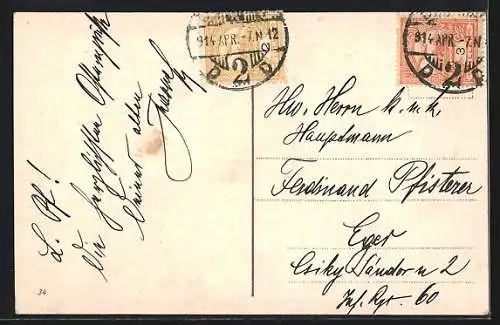 914 APR. -7. N 12
2
914 APR. -7. N
2
L. Pf!
Die herzlichsten Ostergrüße
Deines alten
Hw. Herrn k.u.k.
Hauptmann
Ferdinand Pfisterer
Eger
Csiky Sándor u 2
Inf. Rgt. 60
34